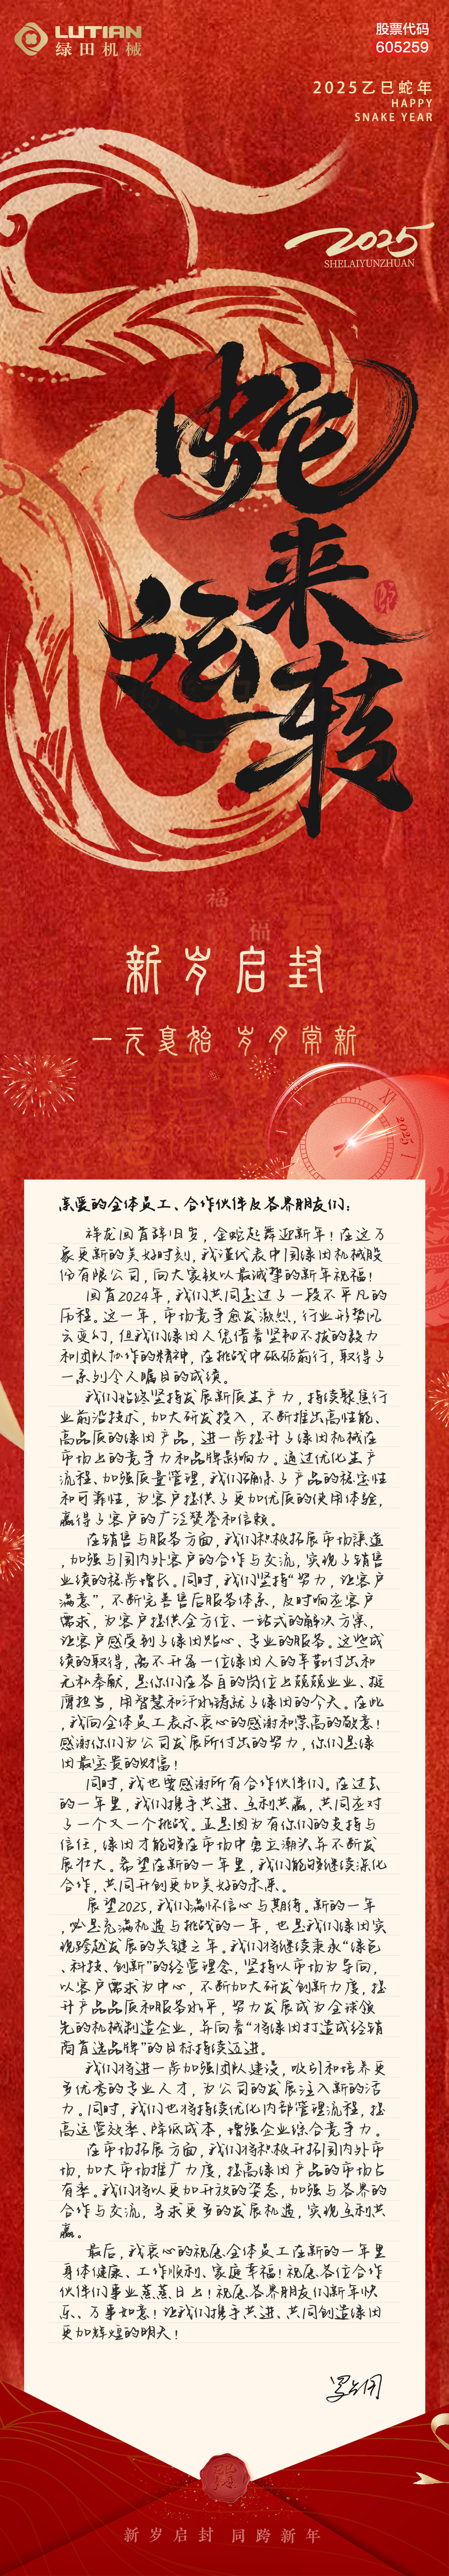 LUTIAN
绿田机械
股票代码
605259
2025乙巳蛇年
HAPPY
SNAKE YEAR
2025
SHELAIYUNZHUAN
蛇
来
运
转
福
福
新岁启封
一元复始 岁月常新
XI
2025
亲爱的全体员工、合作伙伴及各界朋友们:
祥龙回首辞旧岁,金蛇起舞迎新年!在这万
象更新的美好时刻,我谨代表中国绿田机械股
份有限公司,向大家致以最诚挚的新年祝福!
回首2024年,我们共同走过了一段不平凡的
历程。这一年,市场竞争愈发激烈,行业形势风
云变幻,但我们绿田人凭借着坚韧不拔的毅力
和团队协作的精神,在挑战中砥砺前行,取得了
一系列令人瞩目的成绩。
我们始终坚持发展新质生产力,持续聚焦行
业前沿技术,加大研发投入,不断推出高性能、
高品质的绿田产品,进一步提升了绿田机械在
市场上的竞争力和品牌影响力。通过优化生产
流程、加强质量管理,我们确保了产品的稳定性
和可靠性,为客户提供了更加优质的使用体验,
赢得了客户的广泛赞誉和信赖。
在销售与服务方面,我们积极拓展市场渠道
,加强与国内外客户的合作与交流,实现了销售
业绩的稳步增长。同时,我们坚持“努力,让客户
满意”,不断完善售后服务体系,及时响应客户
需求,为客户提供全方位、一站式的解决方案,
让客户感受到了绿田贴心、专业的服务。这些成
绩的取得,离不开每一位绿田人的辛勤付出和
无私奉献,是你们在各自的岗位上兢兢业业、挺
膺担当,用智慧和汗水铸就了绿田的今天。在此
,我向全体员工表示衷心的感谢和崇高的敬意!
感谢你们为公司发展所付出的努力,你们是绿
田最宝贵的财富!
同时,我也要感谢所有合作伙伴们。在过去
的一年里,我们携手共进、互利共赢,共同应对
了一个又一个挑战。正是因为有你们的支持与
信任,绿田才能够在市场中勇立潮头并不断发
展壮大。希望在新的一年里,我们能够继续深化
合作,共同开创更加美好的未来。
展望2025,我们满怀信心与期待。新的一年
,必是充满机遇与挑战的一年,也是我们绿田实
现跨越发展的关键之年。我们将继续秉承“绿色
、科技、创新”的经营理念,坚持以市场为导向,
以客户需求为中心,不断加大研发创新力度,提
升产品品质和服务水平,努力发展成为全球领
先的机械制造企业,并向着“将绿田打造成经销
商首选品牌”的目标持续迈进。
我们将进一步加强团队建设,吸引和培养更
多优秀的专业人才,为公司的发展注入新的活
力。同时,我们也将持续优化内部管理流程,提
高运营效率、降低成本,增强企业综合竞争力。
在市场拓展方面,我们将积极开拓国内外市
场,加大市场推广力度,提高绿田产品的市场占
有率。我们将以更加开放的姿态,加强与各界的
合作与交流,寻求更多的发展机遇,实现互利共
赢。
最后,我衷心的祝愿全体员工在新的一年里
身体健康、工作顺利、家庭幸福!祝愿各位合作
伙伴们事业蒸蒸日上!祝愿各界朋友们新年快
乐、万事如意!让我们携手共进、共同创造绿田
更加辉煌的明天!
新岁启封 同跨新年